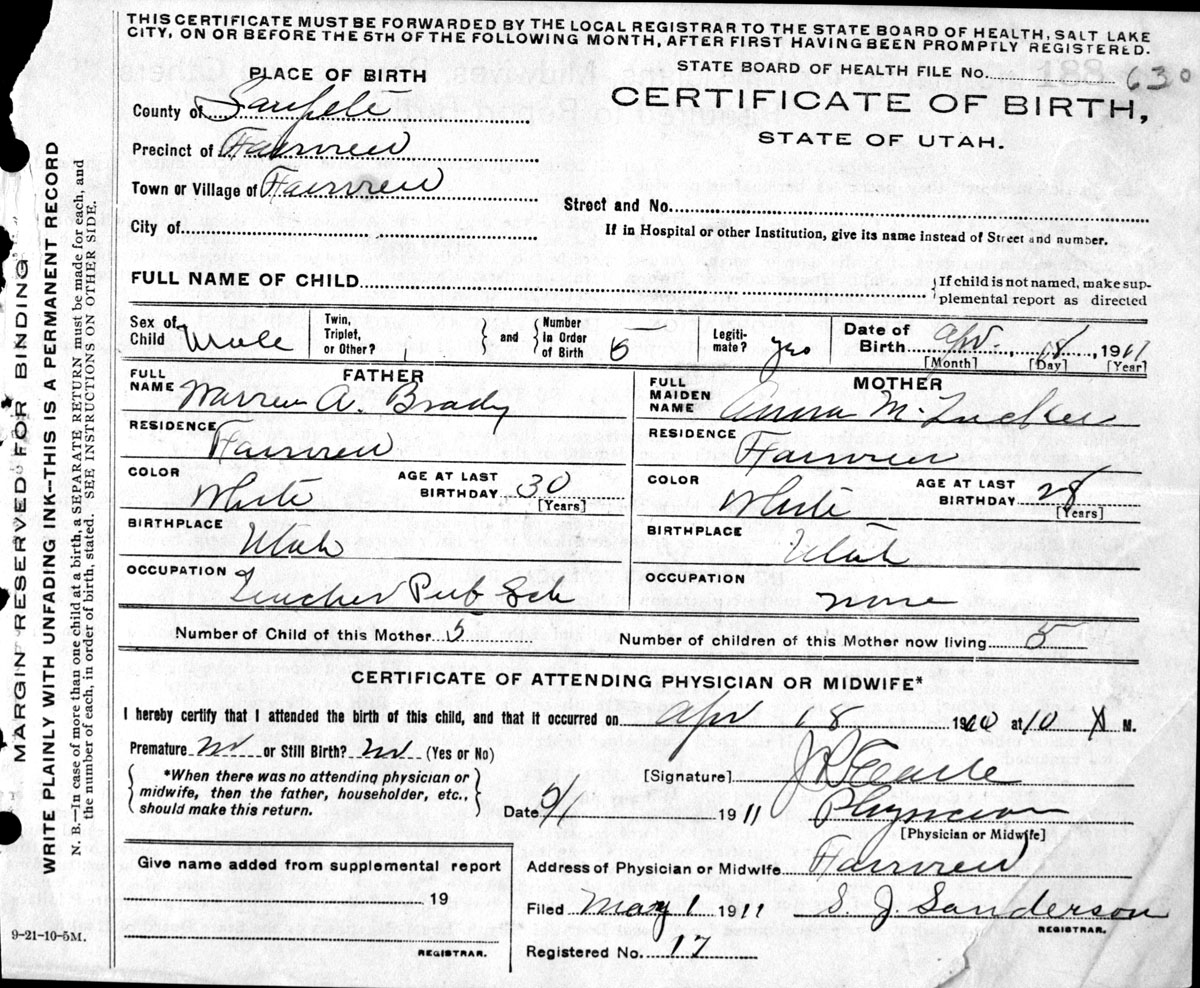 THIS CERTIFICATE MUST BE FORWARDED BY THE LOCAL REGISTRAR TO THE STATE BOARD OF HEALTH, SALT LAKE
CITY, ON OR BEFORE THE 5TH OF THE FOLLOWING MONTH, AFTER FIRST HAVING BEEN PROMPTLY REGISTERED.
STATE BOARD OF HEALTH FILE No. 188 630
CERTIFICATE OF BIRTH,
STATE OF UTAH.
PLACE OF BIRTH
County of Sanpete
Precinct of Fairview
Town or Village of Fairview
City of
Street and No.
If in Hospital or other Institution, give its name instead of Street and number.
FULL NAME OF CHILD
If child is not named, make sup-
plemental report as directed
Sex of Child Male Twin, Triplet, or Other? and Number in Order of Birth Legiti- mate? yes Date of Birth Apr. 18, 1911
[Month] [Day] [Year]
FATHER
FULL NAME Warren A. Brady
RESIDENCE Fairview
COLOR White AGE AT LAST BIRTHDAY 30
[Years]
BIRTHPLACE Utah
OCCUPATION Teacher Pub Sch
MOTHER
FULL MAIDEN NAME Anna M. Tucker
RESIDENCE Fairview
COLOR White AGE AT LAST BIRTHDAY 28
[Years]
BIRTHPLACE Utah
OCCUPATION none
Number of Child of this Mother 5 Number of children of this Mother now living 5
CERTIFICATE OF ATTENDING PHYSICIAN OR MIDWIFE*
I hereby certify that I attended the birth of this child, and that it occurred on Apr 18 19 at 10 M.
Premature no or Still Birth? no (Yes or No)
*When there was no attending physician or
midwife, then the father, householder, etc.,
should make this return.
[Signature]
Date 5/1 1911 Physician
[Physician or Midwife]
Give name added from supplemental report
19
REGISTRAR.
Address of Physician or Midwife Fairview
Filed May 1 1911 S. J. Sanderson
REGISTRAR.
Registered No. 17
9-21-10-5M.
MARGIN RESERVED FOR BINDING
WRITE PLAINLY WITH UNFADING INK—THIS IS A PERMANENT RECORD
N. B.—In case of more than one child at a birth, a SEPARATE RETURN must be made for each, and
the number of each, in order of birth, stated. SEE INSTRUCTIONS ON OTHER SIDE.